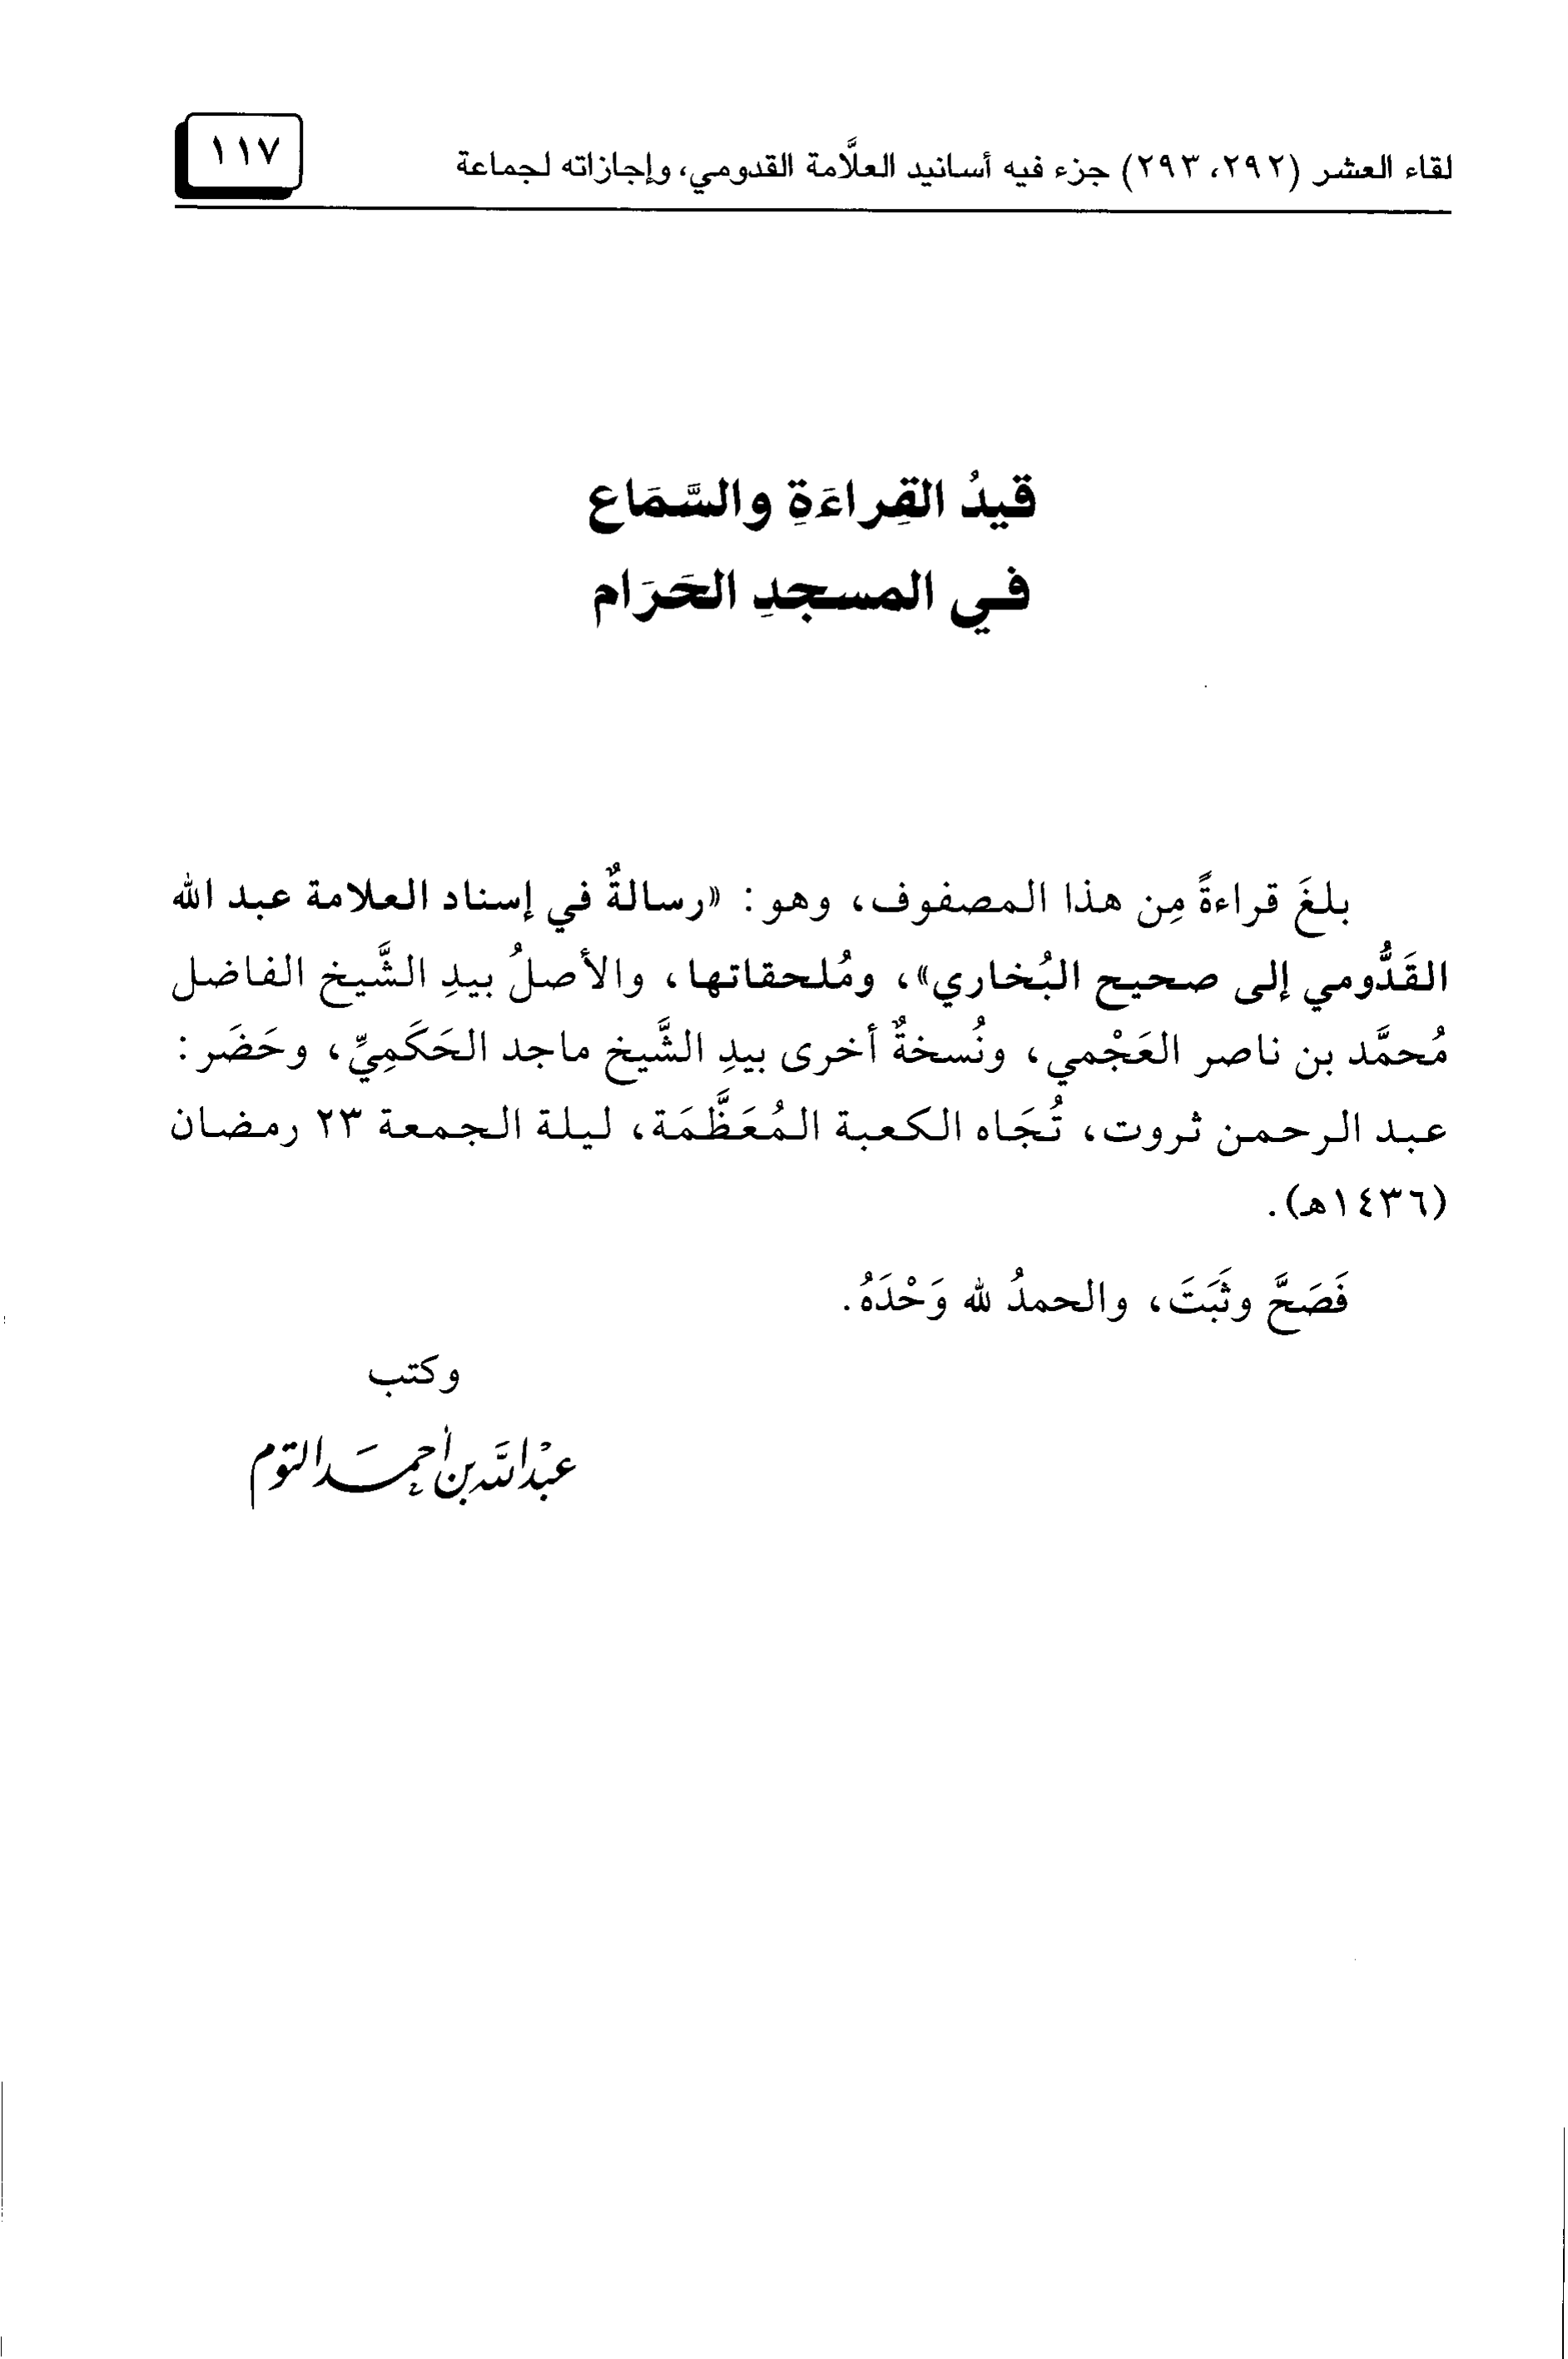 لقاء العشر (٢٩٢، ٢٩٣) جزء فيه أسانيد العلَّامة القدومي، وإجازاته لجماعة
١١٧
قيدُ القِراءَةِ والسَّمَاع
في المسجدِ الحَرَام
بلغَ قراءةً مِن هذا المصفوف، وهو: «رسالةٌ في إسناد العلامة عبد الله
القَدُّومي إلى صحيح البُخاري»، ومُلحقاتها، والأصلُ بيدِ الشَّيخ الفاضل
مُحمَّد بن ناصر العَجْمي، ونُسخةٌ أخرى بيدِ الشَّيخ ماجد الحَكَمِيِّ، وحَضَر:
عبد الرحمن ثروت، تُجَاه الكعبة المُعَظَّمَة، ليلة الجمعة ٢٣ رمضان
(١٤٣٦هـ).
فَصَحَّ وثَبَتَ، والحمدُ لله وَحْدَهُ.
وكتب
عبْد اللَّه بن أحمَد التوم